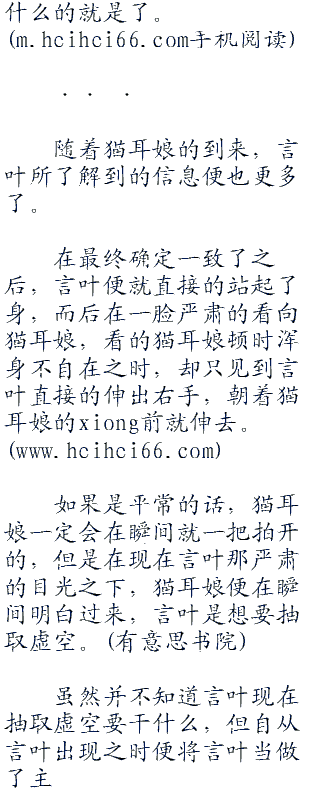 什么的就是了。
(m.hcihci66.com手机阅读)
. . .
随着猫耳娘的到来，言
叶所了解到的信息便也更多
了。
在最终确定一致了之
后，言叶便就直接的站起了
身，而后在一脸严肃的看向
猫耳娘，看的猫耳娘顿时浑
身不自在之时，却只见到言
叶直接的伸出右手，朝着猫
耳娘的xiong前就伸去。
(www.hcihci66.com)
如果是平常的话，猫耳
娘一定会在瞬间就一把拍开
的，但是在现在言叶那严肃
的目光之下，猫耳娘便在瞬
间明白过来，言叶是想要抽
取虚空。(有意思书院)
虽然并不知道言叶现在
抽取虚空要干什么，但自从
言叶出现之时便将言叶当做
了主